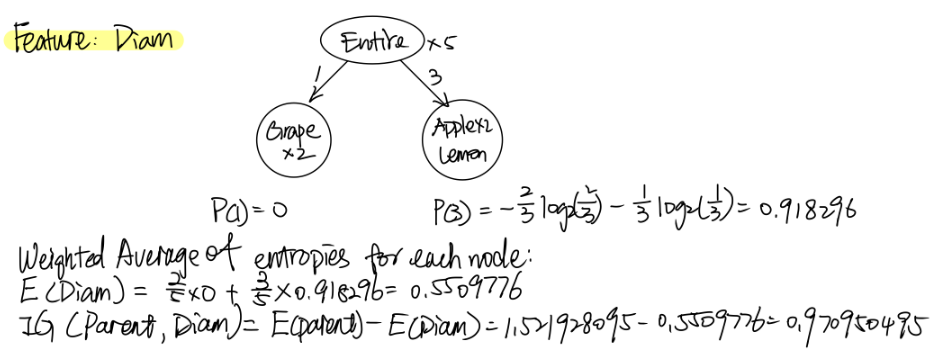 Feature: Diam
Entire ×5
1 3
Grape ×2
Apple×2 Lemon
P(1) = 0
P(3) = -2/3 log2(2/3) - 1/3 log2(1/3) = 0.918296
Weighted Average of entropies for each node:
E(Diam) = 2/5 ×0 + 3/5 ×0.918296 = 0.5509776
IG (Parent, Diam) = E(parent) - E(Diam) = 1.521928095 - 0.5509776 = 0.970950495